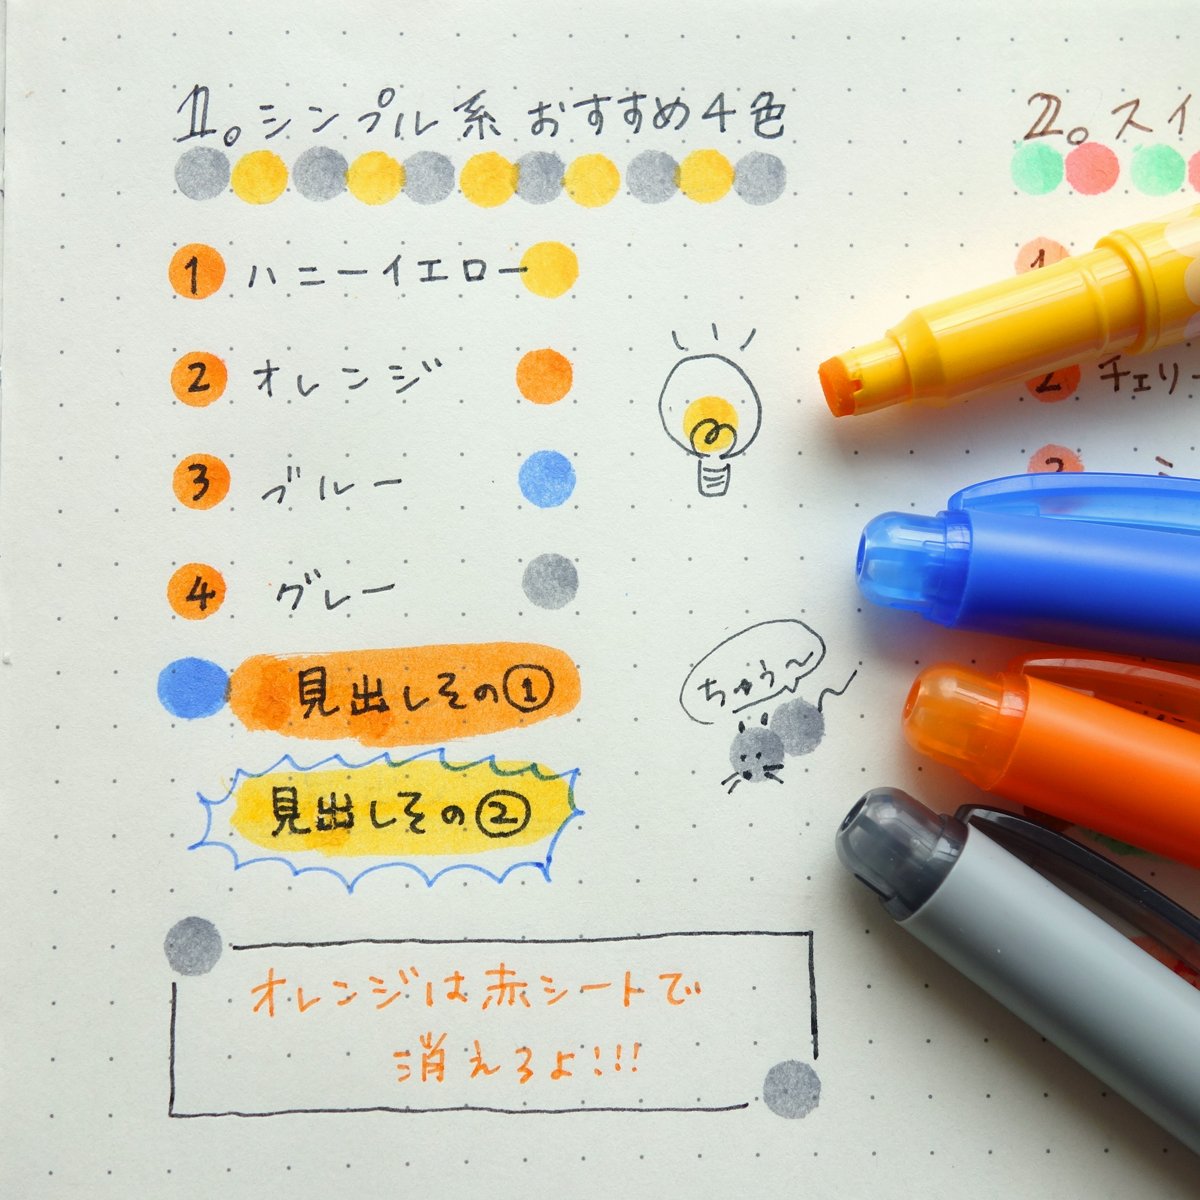 1。シンプル系 おすすめ4色
1 ハニーイエロー
2 オレンジ
3 ブルー
4 グレー
見出しその①
見出しその②
ちゅう〜
オレンジは赤シートで
消えるよ!!!
2。スイ
1
2 チェリー
3